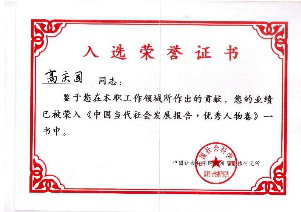 入选荣誉证书
高庆国 同志：
鉴于您在本职工作领域所作出的贡献，您的业绩
已被荣入《中国当代社会发展报告·优秀人物卷》一
书中。